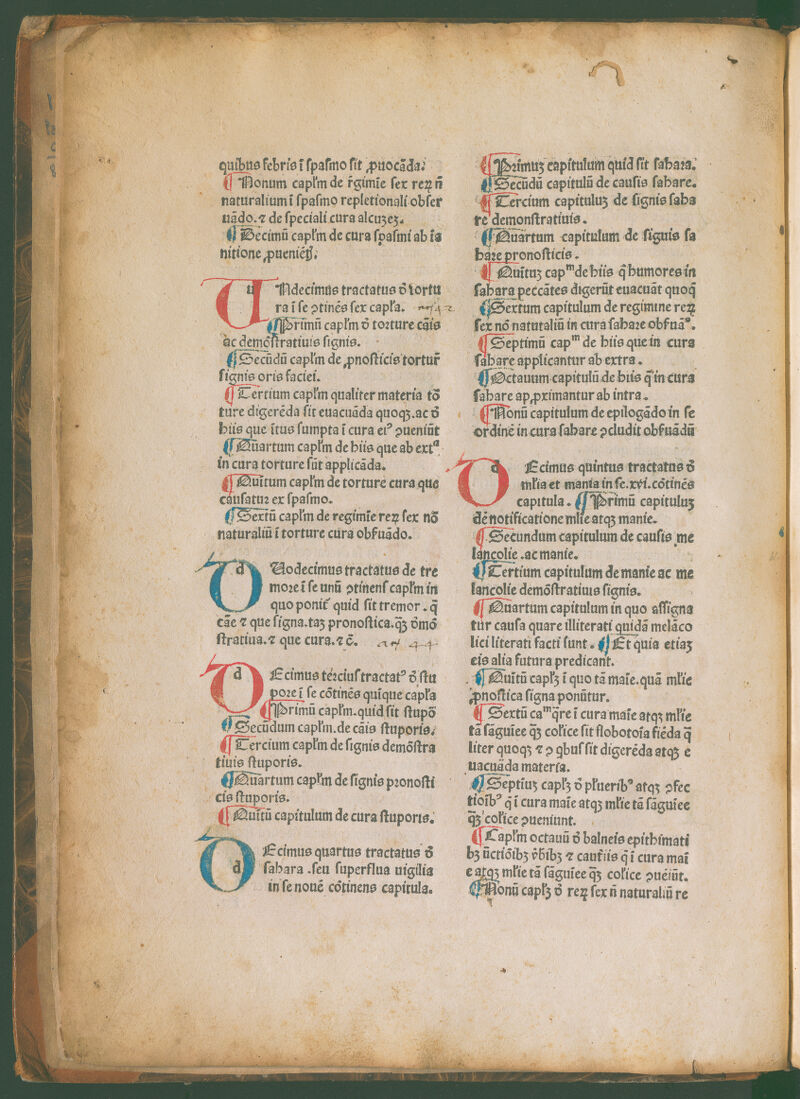 quibus febris ī spasmo sit ꝓuocāda.
¶ Nonum capl'm de r̄gimīe sex reꝝ n̄
naturalium ī spasmo repletionali obser
uādo. ⁊ de speciali cura alcuȝeȝ.
¶ Decimū capl'm de cura spasmi ab īa
nitione ꝓueniēt̄.
UNdecimus tractatus ō tortu
ra ī se ꝯtinēs sex capl'a.
¶ Primū capl'm ō torture cāis
ac demōstratiuis signis.
¶ Secūdū capl'm de ꝓnosticis tortur̄
signis oris faciei.
¶ Tertium capl'm qualiter materia tō
ture digerēda sit euacuāda quoqꝫ. ac ō
hiis que ītus sumpta ī cura eiꝰ ꝯueniūt
¶ Quartum capl'm de hiis que ab extᵃ
in cura torture sūt applicāda.
¶ Quītum capl'm de torture cura que
causatur ex spasmo.
¶ Sextū capl'm de regimīe reꝝ sex nō
naturaliū ī torture cura obſuādo.
DUodecimus tractatus de tre
more ī se unū ꝯtinens capl'm in
quo ponit̄ quid sit tremor. q̄
cāe ⁊ que signa. taꝫ pronostica. q̄ꝫ ōmō
stratiua. ⁊ que cura. ⁊ c̄.
DEcimus tércius tractatꝰ ō stu
pore ī se cōtinēs quīque capl'a
¶ Primū capl'm. quid sit stupō
¶ Secūdum capl'm. de cāis stuporis.
¶ Tercium capl'm de signis demōstra
tiuis stuporis.
¶ Quartum capl'm de signis pronosti
cis stuporis.
¶ Quītū capitulum de cura stuporis.
DEcimus quartus tractatus ō
sahara. seu superflua uigilia
in se nouē cōtinens capitula.
¶ Primuꝫ capitulum quid sit sahara.
¶ Secūdū capitulū de causis sahare.
¶ Tercium capituluꝫ de signis saha
re demonstratiuis.
¶ Quartum capitulum de signis sa
hare pronosticis.
¶ Quītuꝫ capᵐ de hiis q̄ humores in
sahara peccātes digerūt euacuāt quoq̄
¶ Sextum capitulum de regimine reꝝ
sex nō naturaliū in cura sahare obſuāᵒ.
¶ Septimū capᵐ de hiis que in cura
sahare applicantur ab extra.
¶ Octauum capitulū de hiis q̄ in cura
sahare apꝓximantur ab intra.
¶ Nonū capitulum de epilogādo in se
ordinē in cura sahare ꝯcludit obſuādū
DEcimus quintus tractatus ō
ml'ia et mania in se. xvi. cōtinēs
capitula. ¶ Primū capituluꝫ
de notificatione ml'ie atqꝫ manie.
¶ Secundum capitulum de causis me
lancolie. ac manie.
¶ Tertium capitulum de manie ac me
lancolie demōstratiuis signis.
¶ Quartum capitulum in quo assigna
tur causa quare illiterati quidā melāco
lici literati facti sunt. ¶ Et quia etiaꝫ
eis alia futura predicant.
¶ Quītū capl'ꝫ ī quo tā maīe. quā ml'ie
ꝓnostica signa ponūtur.
¶ Sextū caᵐ q̄re ī cura maīe atqꝫ ml'ie
tā sāguiee q̄ꝫ col'ice sit flobotoīa fiēda q̄
liter quoqꝫ ⁊ ꝯ qbus sit digerēda atqꝫ e
uacuāda materia.
¶ Septiuꝫ capl'ꝫ ō pl'ueribꝰ atqꝫ ꝯfec
tioībꝰ q̄ ī cura maīe atqꝫ ml'ie tā sāguiee
q̄ꝫ col'ice ꝯueniunt.
¶ Capl'm octauū ō balneis epithimati
bꝫ ūctiōibꝫ v̄bībꝫ ⁊ cautiis q̄ ī cura maī
e atqꝫ ml'ie tā sāguiee q̄ꝫ col'ice ꝯuēiūt.
¶ Nonū capl'ꝫ ō reꝝ sex n̄ naturaliū re